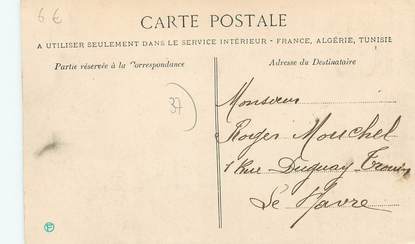 6 €
CARTE POSTALE
A UTILISER SEULEMENT DANS LE SERVICE INTÉRIEUR - FRANCE, ALGÉRIE, TUNISIE
Partie réservée à la Correspondance
Adresse du Destinataire
37
Monsieur
Roger Mouchel
1 Rue Duguay Trouin
Le Havre